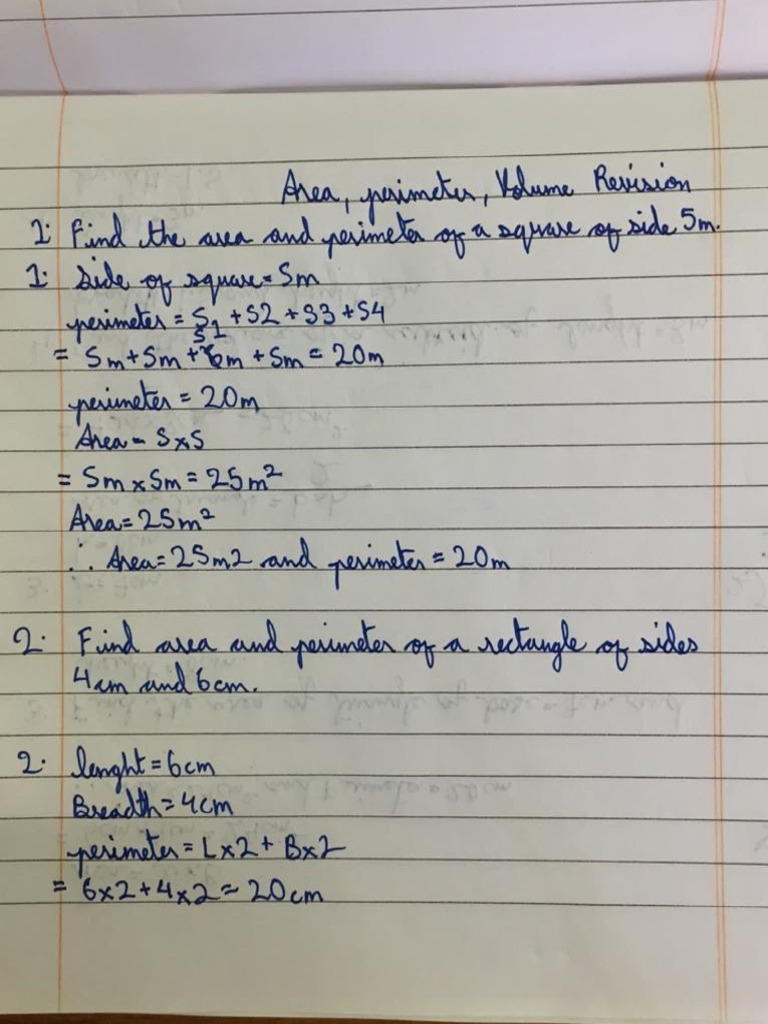 Area, perimeter, Volume Revision
1. Find the area and perimeter of a square of side 5m.
1. Side of square = 5m
perimeter = S1 + S2 + S3 + S4
S1
= 5m + 5m + 5m + 5m = 20m
perimeter = 20m
Area = S x S
= 5m x 5m = 25m²
Area = 25m²
∴ Area = 25m2 and perimeter = 20m
2. Find area and perimeter of a rectangle of sides
4cm and 6cm.
2. lenght = 6cm
Breadth = 4cm
perimeter = L x 2 + B x 2
= 6 x 2 + 4 x 2 = 20cm